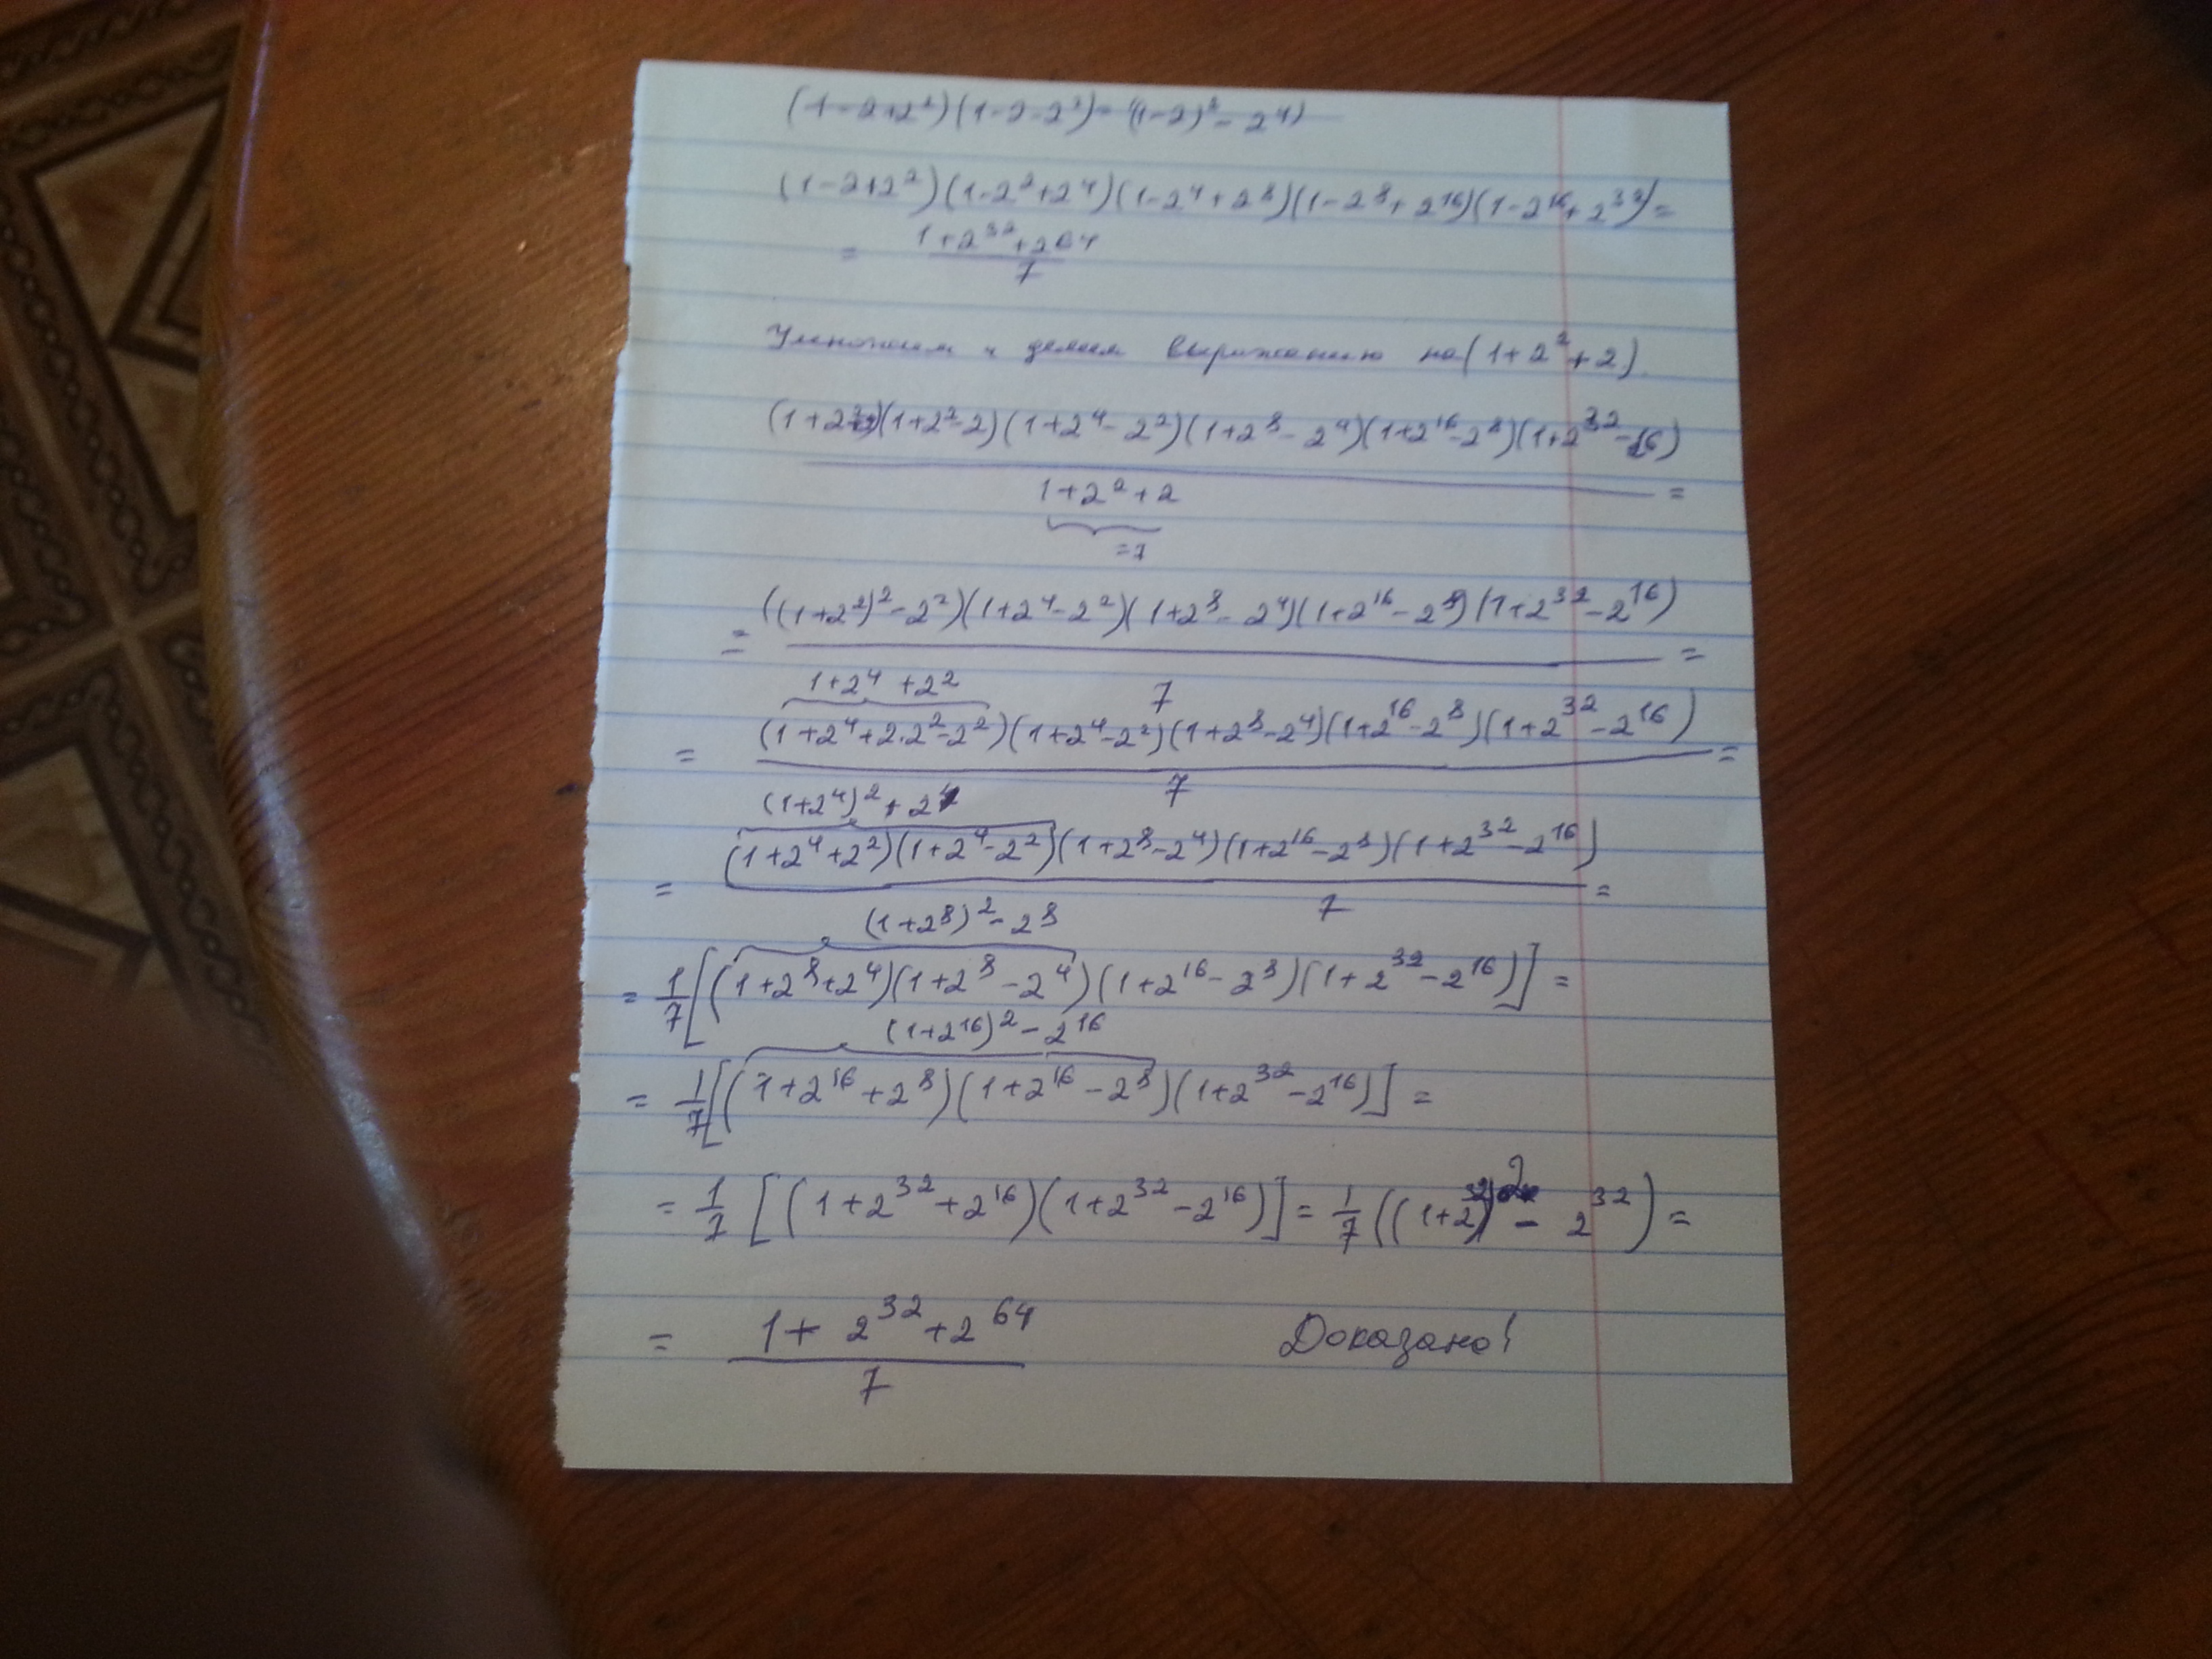 (1-2+2²)(1-2-2²)=((1-2)²-2⁴)
(1-2+2²)(1-2²+2⁴)(1-2⁴+2⁸)(1-2⁸+2¹⁶)(1-2¹⁶+2³²)=
= (1+2³²+2⁶⁴)/7
Умножим и делим выражению на (1+2²+2)
(1+2²+2)(1+2²-2)(1+2⁴-2²)(1+2⁸-2⁴)(1+2¹⁶-2⁸)(1+2³²-16) =
1+2²+2
=7
= ((1+2²)²-2²)(1+2⁴-2²)(1+2⁸-2⁴)(1+2¹⁶-2⁸)(1+2³²-2¹⁶) =
7
1+2⁴+2²
= (1+2⁴+2·2²-2²)(1+2⁴-2²)(1+2⁸-2⁴)(1+2¹⁶-2⁸)(1+2³²-2¹⁶) =
7
(1+2⁴)²+2⁴
= (1+2⁴+2²)(1+2⁴-2²)(1+2⁸-2⁴)(1+2¹⁶-2⁸)(1+2³²-2¹⁶) =
7
(1+2⁸)²-2⁸
= 1/7[(1+2⁸+2⁴)(1+2⁸-2⁴)(1+2¹⁶-2⁸)(1+2³²-2¹⁶)] =
(1+2¹⁶)²-2¹⁶
= 1/7[(1+2¹⁶+2⁸)(1+2¹⁶-2⁸)(1+2³²-2¹⁶)] =
= 1/7[(1+2³²+2¹⁶)(1+2³²-2¹⁶)] = 1/7((1+2³²)²-2³²) =
= (1+2³²+2⁶⁴)/7 Доказано!